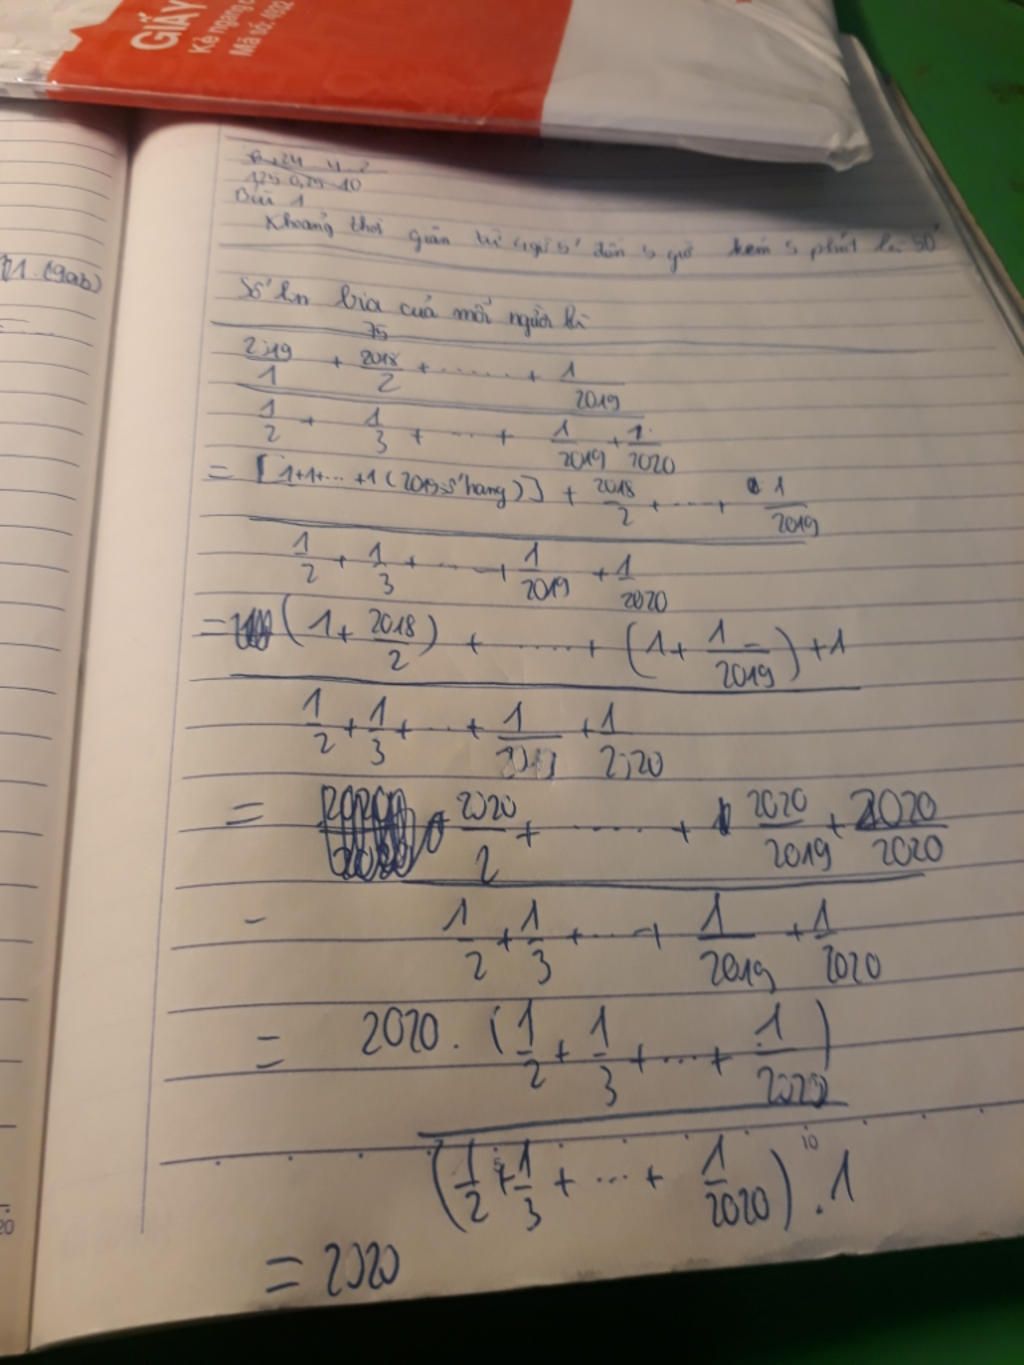 GIẤY
Kẻ ngang
Mã số: 4032
1. (9ab)
1,25 0,25 10
Bài 1
Khoảng thời gian từ đến 5 giờ kém 5 phút là 50
Số lần bia của mỗi người là
75
2019/1 + 2018/2 + ....... + 1/2019
1/2 + 1/3 + ... + 1/2019 + 1/2020
= [1+1+...+1 (2019 số hạng)] + 2018/2 + ..... + 1/2019
1/2 + 1/3 + ... + 1/2019 + 1/2020
= (1 + 2018/2) + ...... + (1 + 1/2019) + 1
1/2 + 1/3 + ... + 1/2019 + 1/2020
= 2020/2 + ...... + 2020/2019 + 2020/2020
1/2 + 1/3 + ... + 1/2019 + 1/2020
= 2020 . (1/2 + 1/3 + ... + 1/2020)
(1/2 + 1/3 + ... + 1/2020) . 1
5 10
= 2020
20